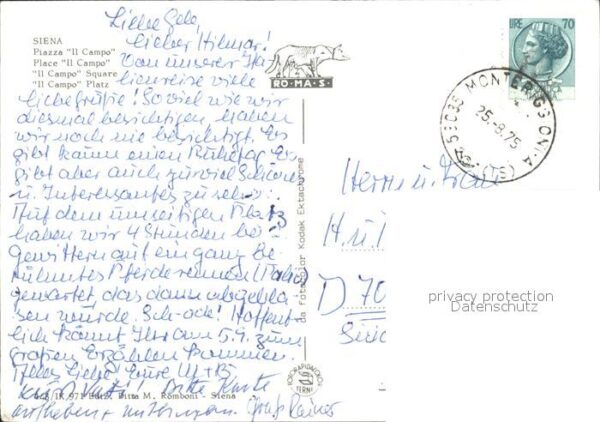 SIENA
Piazza "Il Campo"
Place "Il Campo"
"Il Campo" Square
"Il Campo" Platz
RO-MA-S.
LIRE 70
53035 MONTERIGGIONI-A
(SI)
25.-8.75
Liebe Gele,
lieber Hilmar!
Von unserer Ita-
lienreise viele
liebe Grüße! Soviel wie wir
diesmal besichtigen haben
wir noch nie besichtigt. Es
gibt kaum einen Ruhetag. Es
gibt aber auch zuviel Schönes
u. Interessantes zu sehen.
Auf dem umseitigen Platz
haben wir 4 Stunden bei
Gewittern auf ein ganz be-
rühmtes Pferderennen (Palio)
gewartet, das dann abgebla-
sen wurde. Schade! Hoffent-
lich könnt Ihr am 5.9. zum
großen Erzählen kommen.
Alles Liebe Eure
Bitte Karte
aufheben + mitbringen. Gruß Rainer
Herrn u. Frau
H. u.
D 70
da Fotocolor Kodak Ektachrome
FOTORAPIDACOLOR
TERNI
Ediz. Ditta M. Romboni - Siena
privacy protection
Datenschutz